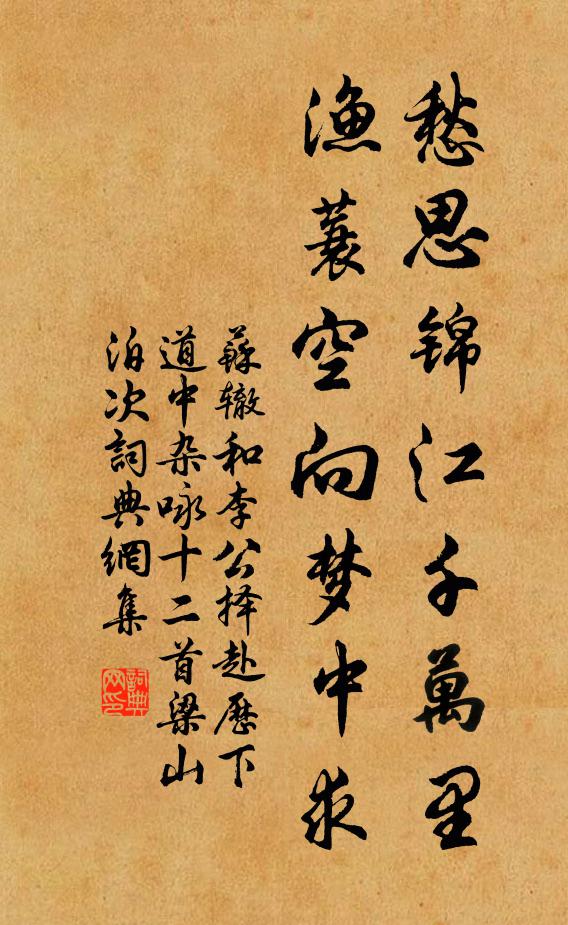 愁思锦江千萬里
渔蓑空向梦中求
蘇辙和李公择赴歷下
道中杂咏十二首梁山
泊次詞典網集
詞典
网印